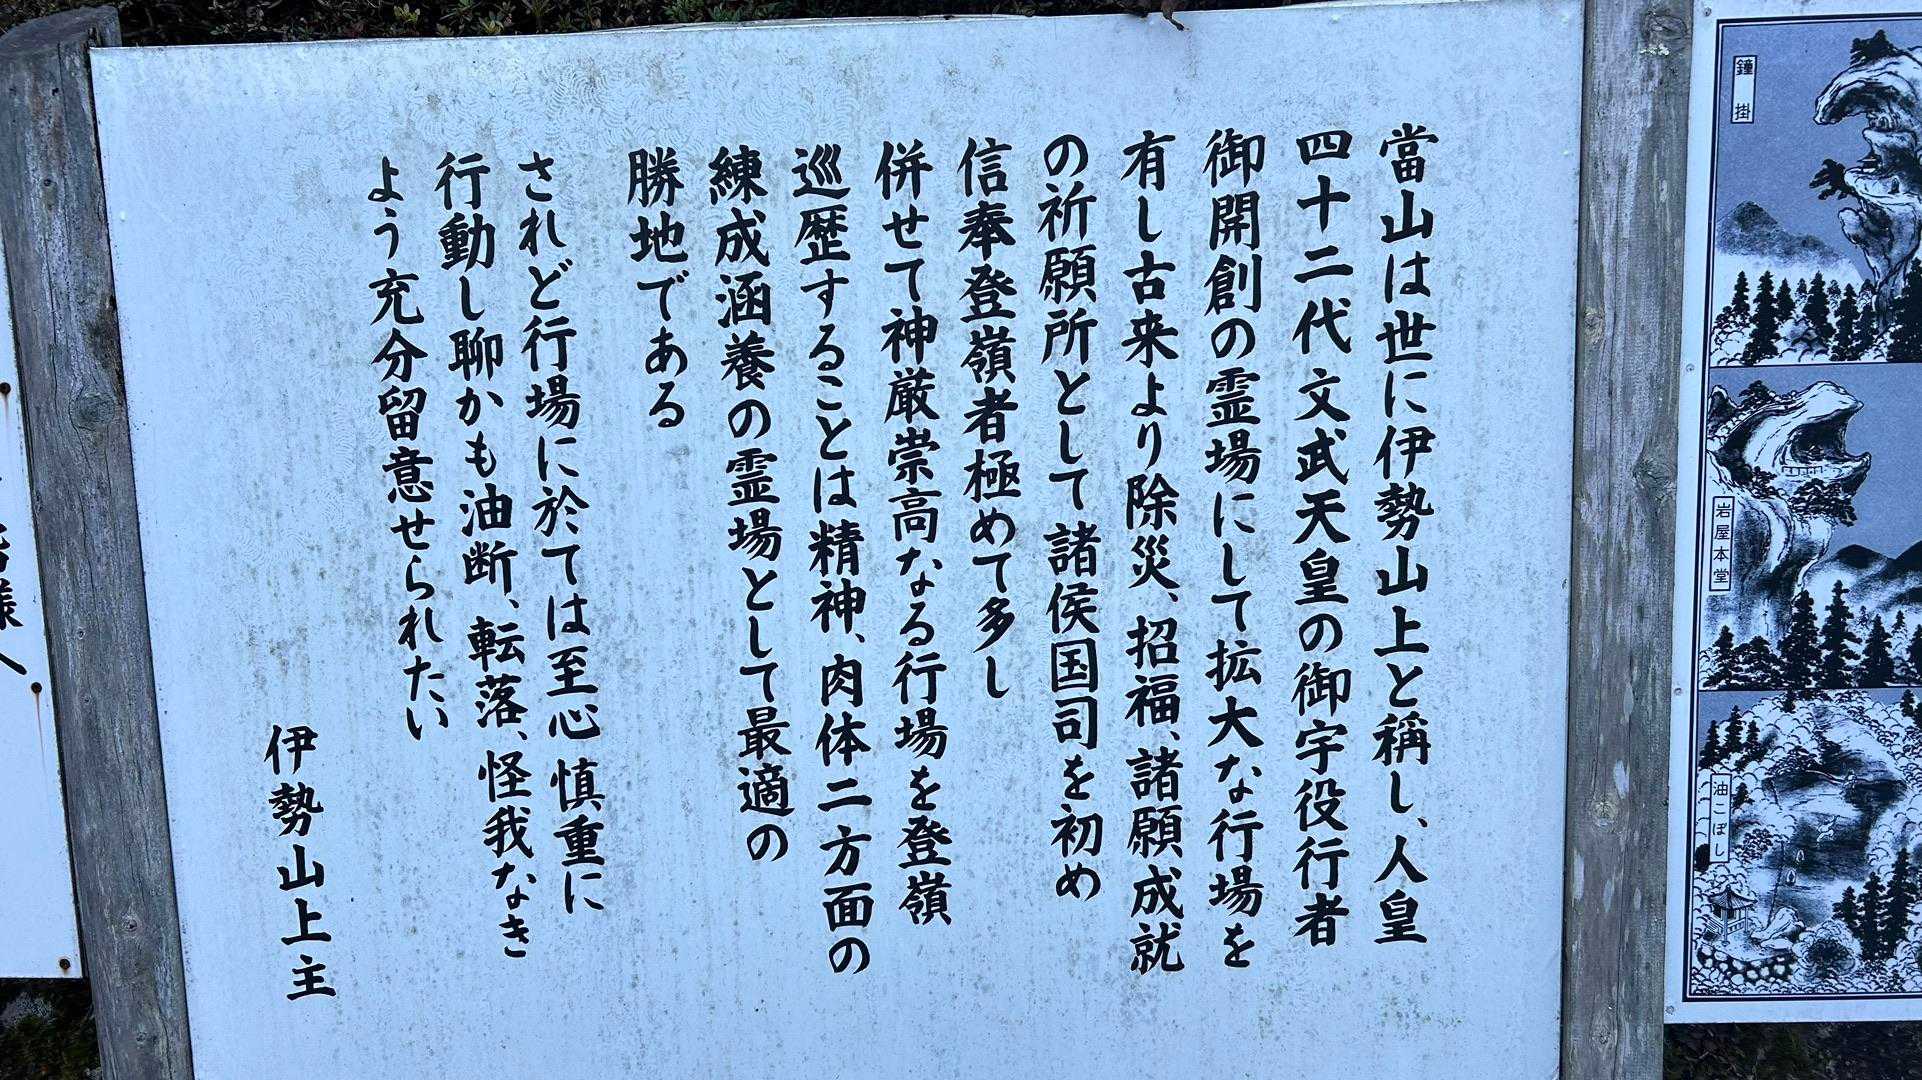 當山は世に伊勢山上と稱し、人皇
四十二代文武天皇の御宇役行者
御開創の霊場にして拡大な行場を
有し古来より除災、招福、諸願成就
の祈願所として諸侯国司を初め
信奉登嶺者極めて多し
併せて神厳崇高なる行場を登嶺
巡歴することは精神、肉体二方面の
練成涵養の霊場として最適の
勝地である
されど行場に於ては至心慎重に
行動し聊かも油断、転落、怪我なき
よう充分留意せられたい
伊勢山上主
鐘掛
岩屋本堂
油こぼし
様へ